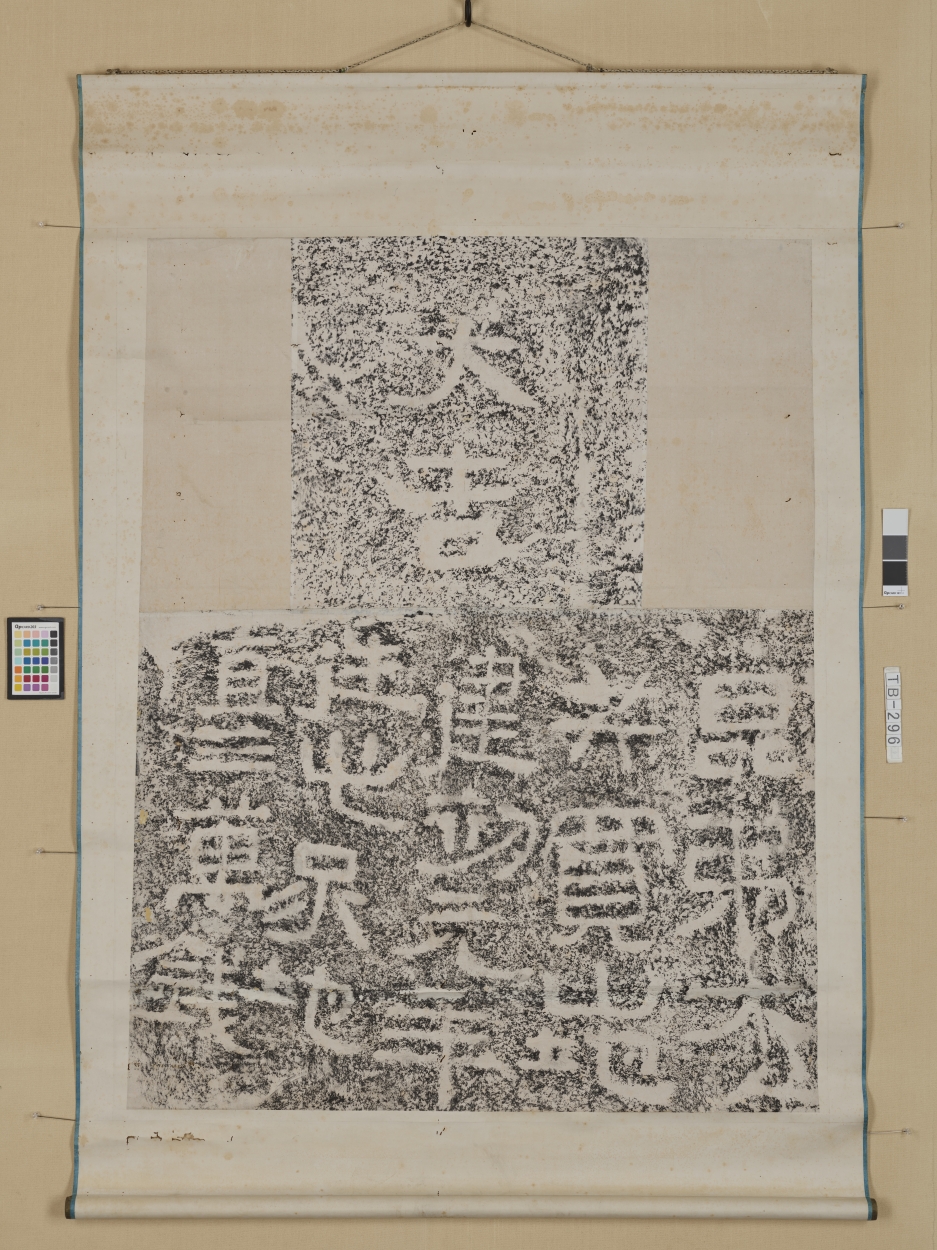 大吉
昆弟六人
共買山地
建初元年
造此冢地
直三萬錢
TB-296